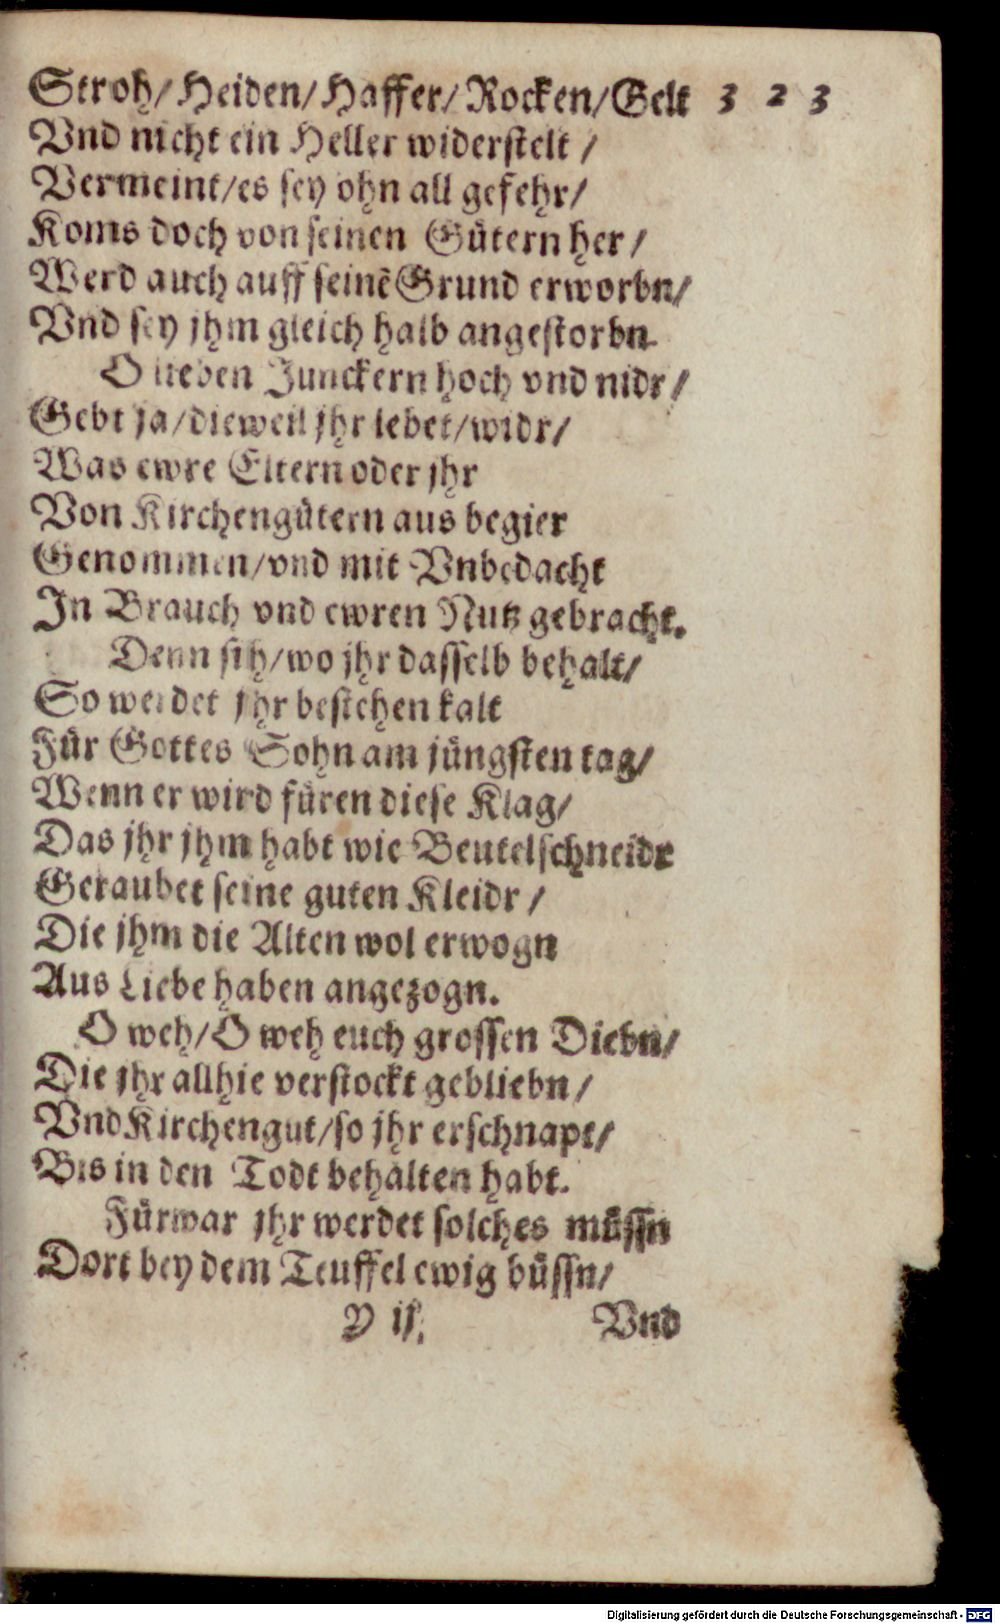 Stroh/ Heiden/ Haffer/ Rocken/ Gelt 323
Vnd nicht ein Heller widerstelt /
Vermeint/es sey ohn all gefehr/
Koms doch von seinen Gütern her /
Werd auch auff seinē Grund erworbn/
Vnd sey jhm gleich halb angestorbn.
O lieben Junckern hoch vnd nidr /
Gebt ja/dieweil jhr lebet/widr/
Was ewre Eltern oder jhr
Von Kirchengütern aus begier
Genommen/vnd mit Vnbedacht
In Brauch vnd ewren Nutz gebracht.
Denn sih/wo jhr dasselb behalt/
So werdet jhr bestehen kalt
Für Gottes Sohn am jüngsten tag/
Wenn er wird füren diese Klag/
Das jhr jhm habt wie Beutelschneidr
Geraubet seine guten Kleidr /
Die jhm die Alten wol erwogn
Aus Liebe haben angezogn.
O weh/O weh euch grossen Diebn/
Die jhr allhie verstockt gebliebn /
Vnd Kirchengut/so jhr erschnapt/
Bis in den Todt behalten habt.
Fürwar jhr werdet solches müssn
Dort bey dem Teuffel ewig büssn/
Y ij. Vnd
Digitalisierung gefördert durch die Deutsche Forschungsgemeinschaft - DFG